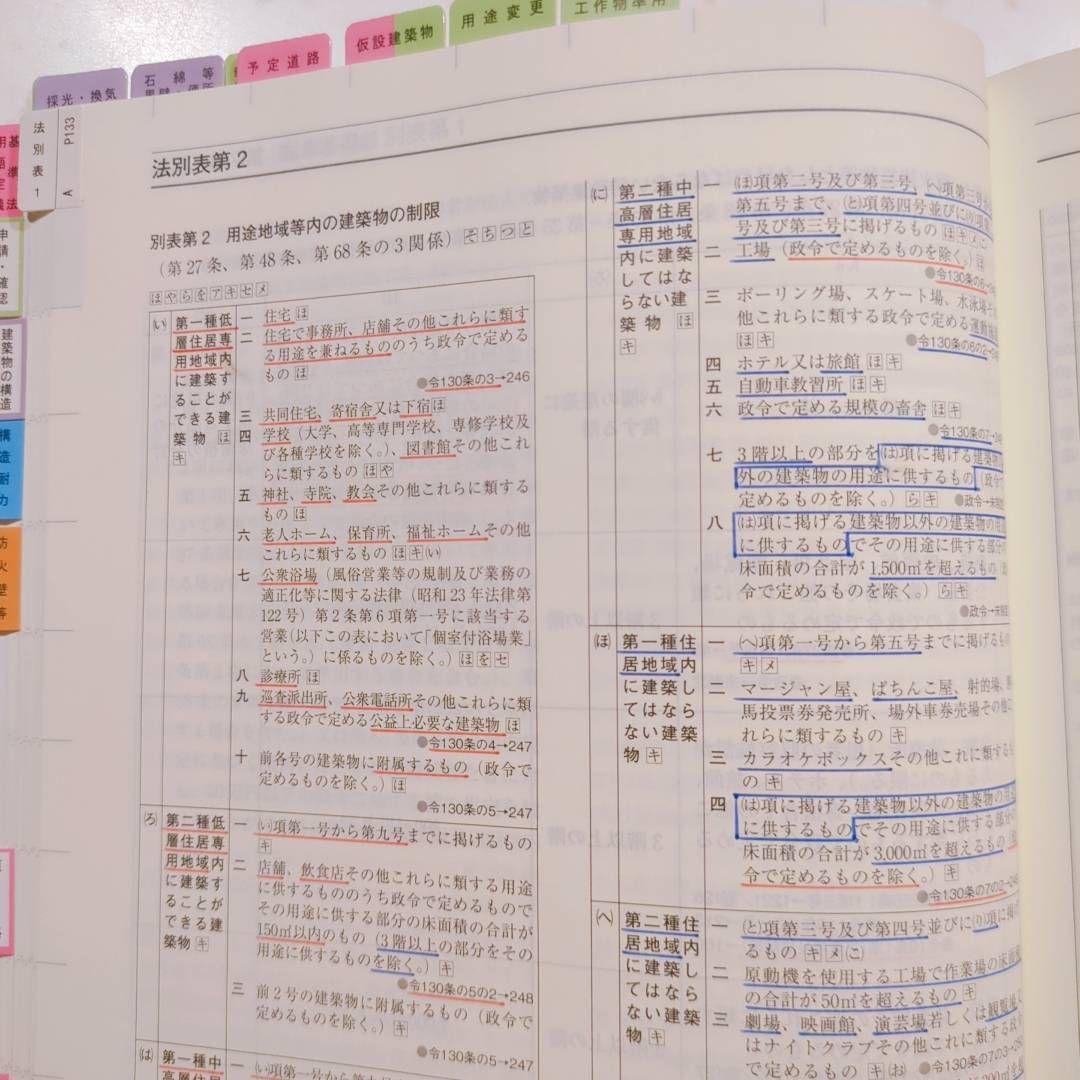 採光・換気
石綿等
予定道路
仮設建築物
用途変更
工作物準用
法別表1
P133
A
申請・確認
建築物の構造
構造耐力
防火壁等
法別表第2
別表第2 用途地域等内の建築物の制限
(第27条、第48条、第68条の3関係) そちつと
ほやらをアキセメ
(い) 第一種低層住居専用地域内に建築することができる建築物 ほキ
一 住宅 ほ
二 住宅で事務所、店舗その他これらに類す
る用途を兼ねるもののうち政令で定める
もの ほ
●令130条の3→246
三 共同住宅、寄宿舎又は下宿 ほ
四 学校(大学、高等専門学校、専修学校及
び各種学校を除く。)、図書館その他これ
らに類するもの ほや
五 神社、寺院、教会その他これらに類する
もの ほ
六 老人ホーム、保育所、福祉ホームその他
これらに類するもの ほキ(い)
七 公衆浴場(風俗営業等の規制及び業務の
適正化等に関する法律(昭和23年法律第
122号)第2条第6項第一号に該当する
営業(以下この表において「個室付浴場業」
という。)に係るものを除く。) ほをセ
八 診療所 ほ
九 巡査派出所、公衆電話所その他これらに類
する政令で定める公益上必要な建築物 ほ
●令130条の4→247
十 前各号の建築物に附属するもの(政令で
定めるものを除く。) ほ
●令130条の5→247
(ろ) 第二種低層住居専用地域内に建築することができる建築物 キ
一 (い)項第一号から第九号までに掲げるもの
キ
二 店舗、飲食店その他これらに類する用途
に供するもののうち政令で定めるもので
その用途に供する部分の床面積の合計が
150㎡以内のもの(3階以上の部分をその
用途に供するものを除く。) キ
●令130条の5の2→248
三 前2号の建築物に附属するもの(政令で
定めるものを除く。) キ
●令130条の5→247
(は) 第一種中
(に) 第二種中高層住居専用地域内に建築してはならない建築物 ほキ
一 (ほ)項第二号及び第三号、(へ)項第三号
第五号まで、(と)項第四号並びに(り)項第
号及び第三号に掲げるもの ほキメこ
二 工場(政令で定めるものを除く。) ほ
●令130条の6
三 ボーリング場、スケート場、水泳場そ
他これらに類する政令で定める運動施
ほキ
●令130条の6の2
四 ホテル又は旅館 ほキ
五 自動車教習所 ほキ
六 政令で定める規模の畜舎 ほキ
●令130条の7
七 3階以上の部分を(は)項に掲げる建築物
外の建築物の用途に供するもの(政令
定めるものを除く。) らキ
●政令→未制定
八 (は)項に掲げる建築物以外の建築物の用
に供するものでその用途に供する部分
床面積の合計が1,500㎡を超えるもの
令で定めるものを除く。) らキ
●政令→未制定
(ほ) 第一種住居地域内に建築してはならない建築物 キ
一 (へ)項第一号から第五号までに掲げるもの
キメ
二 マージャン屋、ぱちんこ屋、射的場、
馬投票券発売所、場外車券売場その他こ
れらに類するもの キ
三 カラオケボックスその他これに類するも
の キ
四 (は)項に掲げる建築物以外の建築物の用
に供するものでその用途に供する部分
床面積の合計が3,000㎡を超えるもの
令で定めるものを除く。) キ
●令130条の7の2
(へ) 第二種住居地域内に建築してはならない建築物 キ
一 (と)項第三号及び第四号並びに(り)項に掲
るもの キメ(こ)
二 原動機を使用する工場で作業場の床面
の合計が50㎡を超えるもの キ
三 劇場、映画館、演芸場若しくは観覧場
はナイトクラブその他これに類する政
で定めるもの キ(お)
●令130条の7の3